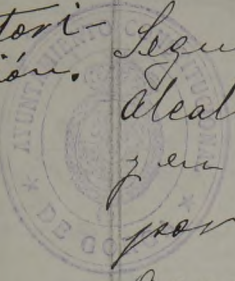 tori-
ión.
Segu
alcal
y en
por
AYUNTAMIENTO CONSTITUCIONAL
DE GOR